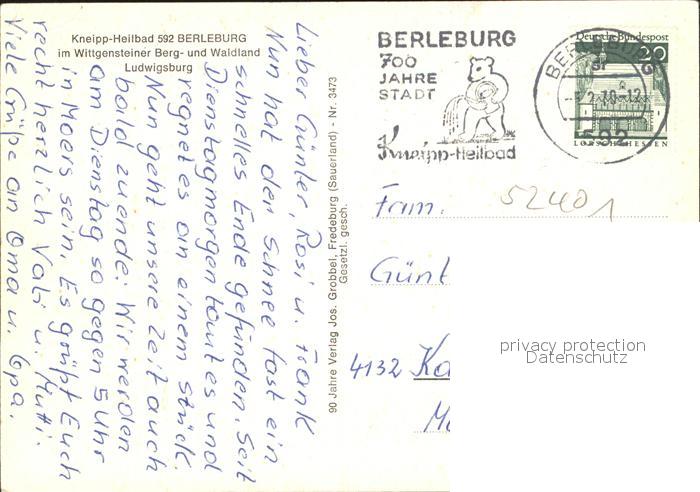 Kneipp-Heilbad 592 BERLEBURG
im Wittgensteiner Berg- und Waldland
Ludwigsburg
Lieber Günter, Rosi u. Frank
Nun hat der Schnee fast ein
schnelles Ende gefunden. Seit
Dienstagmorgen taut es und
regnet es an einem stück.
Nun geht unsere Zeit auch
bald zuende. Wir werden
am Dienstag so gegen 5 Uhr
in Moers sein. Es grüßt Euch
recht herzlich Vati u. Mutti.
Viele Grüße an Oma u. Opa.
90 Jahre Verlag Jos. Grobbel, Fredeburg (Sauerland) - Nr. 3473
Gesetzl. gesch.
BERLEBURG
700
JAHRE
STADT
Kneipp-Heilbad
BERLEBURG
592
Deutsche Bundespost
20
LORSCH/HESSEN
52401
Fam.
Günt
4132 Ka
privacy protection
Datenschutz